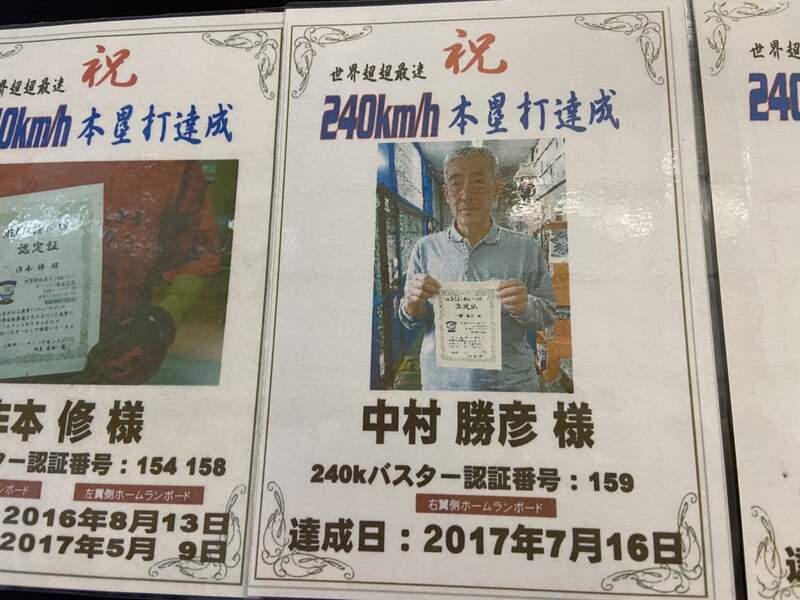 祝
界超超最速
0km/h 本塁打達成
認定証
作本 修 様
本 修 様
ター認証番号：154 158
ンボード
左翼側ホームランボード
：2016年8月13日
2017年5月 9日
祝
世界超超最速
240km/h 本塁打達成
認定証
中村 勝彦 様
240kバスター認証番号：159
右翼側ホームランボード
達成日：2017年7月16日
世界超超
240
達